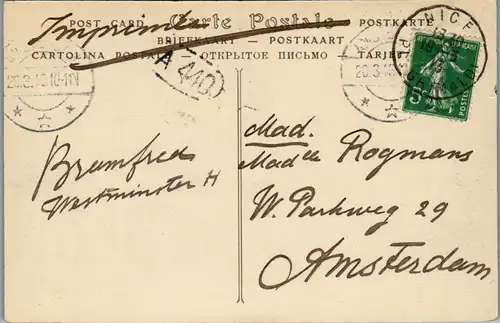 Imprimé
POST CARD Carte Postale POSTKARTE
BRIEFKAART - POSTKAART
CARTOLINA POSTALE ОТКРЫТОЕ ПИСЬМО
A 440
NICE
5c
POSTES
Bramfred
Westminster H
Mad.
Rogmans
W. Parkweg 29
Amsterdam